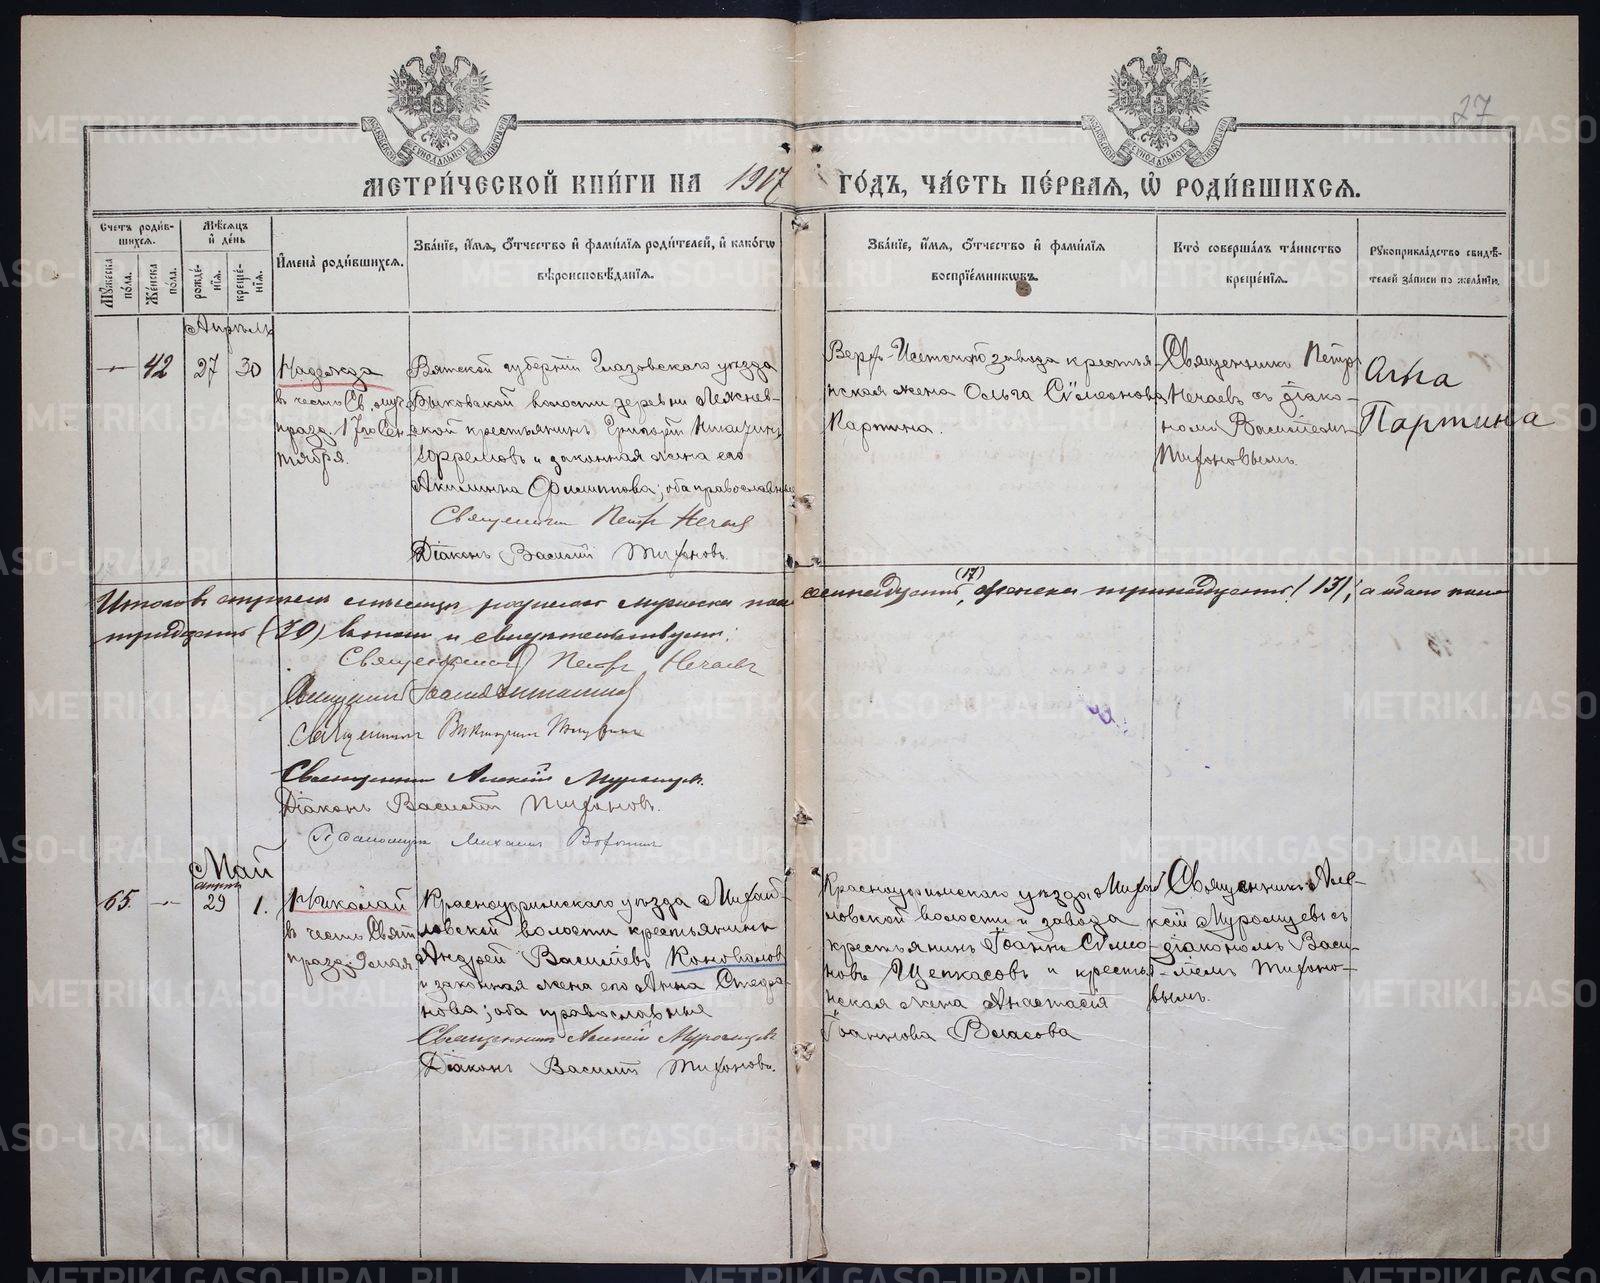 27
МЕТРИ́ЧЕСКОЙ КНИ́ГИ НА 1917 ГО́ДЪ, ЧА́СТЬ ПЕ́РВАЯ, Ѡ҆ РОДИ́ВШИХСЯ.
Счетъ роди́вшихся.
Мꙋ́жеска по́ла.
Же́нска по́ла.
Мѣ́сяцъ и҆ де́нь
рожде́нїя.
креще́нїя.
И҆мена̀ роди́вшихся.
Зва́нїе, и҆́мя, ѻ҆́тчество и҆ фами́лїя роди́телей, и҆ како́гѡ
вѣроисповѣ́данїя.
Зва́нїе, и҆́мя, ѻ҆́тчество и҆ фами́лїя
воспрїе́мникѡвъ.
Кто̀ соверша́лъ та́инство
креще́нїя.
Рꙋкоприкла́дство свидѣ́-
телей за́писи по жела́нїю.
Апрѣль
— 42 27 30
Надежда
въ честь Св. муч.
празд. 17го Сен-
тября.
Вятской губерніи Глазовскаго уѣзда
Быковской волости деревни Лекнев-
ской крестьянинъ Григорій
Ефремовъ и законная жена его
Акилина Филиппова; оба православные
Священникъ Петръ Нечаевъ
Діаконъ Василій Тихоновъ.
Верхъ-Исетскаго завода крестья-
нская жена Ольга Сѵмеонова
Партина.
Священникъ Петръ
Нечаевъ съ діако-
номъ Василіемъ
Тихоновымъ.
Анна
Партина
Итого въ апрѣлѣ мѣсяцѣ родилось мужеска пола семнадцать (17), женска тринадцать (13), а обоего пола
тридцать (30) въ чемъ и свидѣтельствуемъ:
Священникъ Петръ Нечаевъ
Священникъ
Священникъ Викторинъ
Священникъ Алексій Муромцевъ.
Діаконъ Василій Тихоновъ.
Псаломщикъ Михаилъ
Май
65. — апрѣль 29 1.
Николай
въ честь Свят.
празд. 9 мая
Красноуфимскаго уѣзда Михай-
ловской волости крестьянинъ
Андрей Василіевъ Коноваловъ
и законная жена его Анна Стефа-
нова; оба православные
Священникъ Алексій Муромцевъ
Діаконъ Василій Тихоновъ.
Красноуфимскаго уѣзда, Михай-
ловской волости и завода
крестьянинъ Іоаннъ Сѵмео-
новъ Щепкасовъ и крестья-
нская жена Анастасія
Іоаннова Власова
Священникъ Але-
ксій Муромцевъ съ
діакономъ Васи-
ліемъ Тихоно-
вымъ.
METRIKI.GASO-URAL.RU